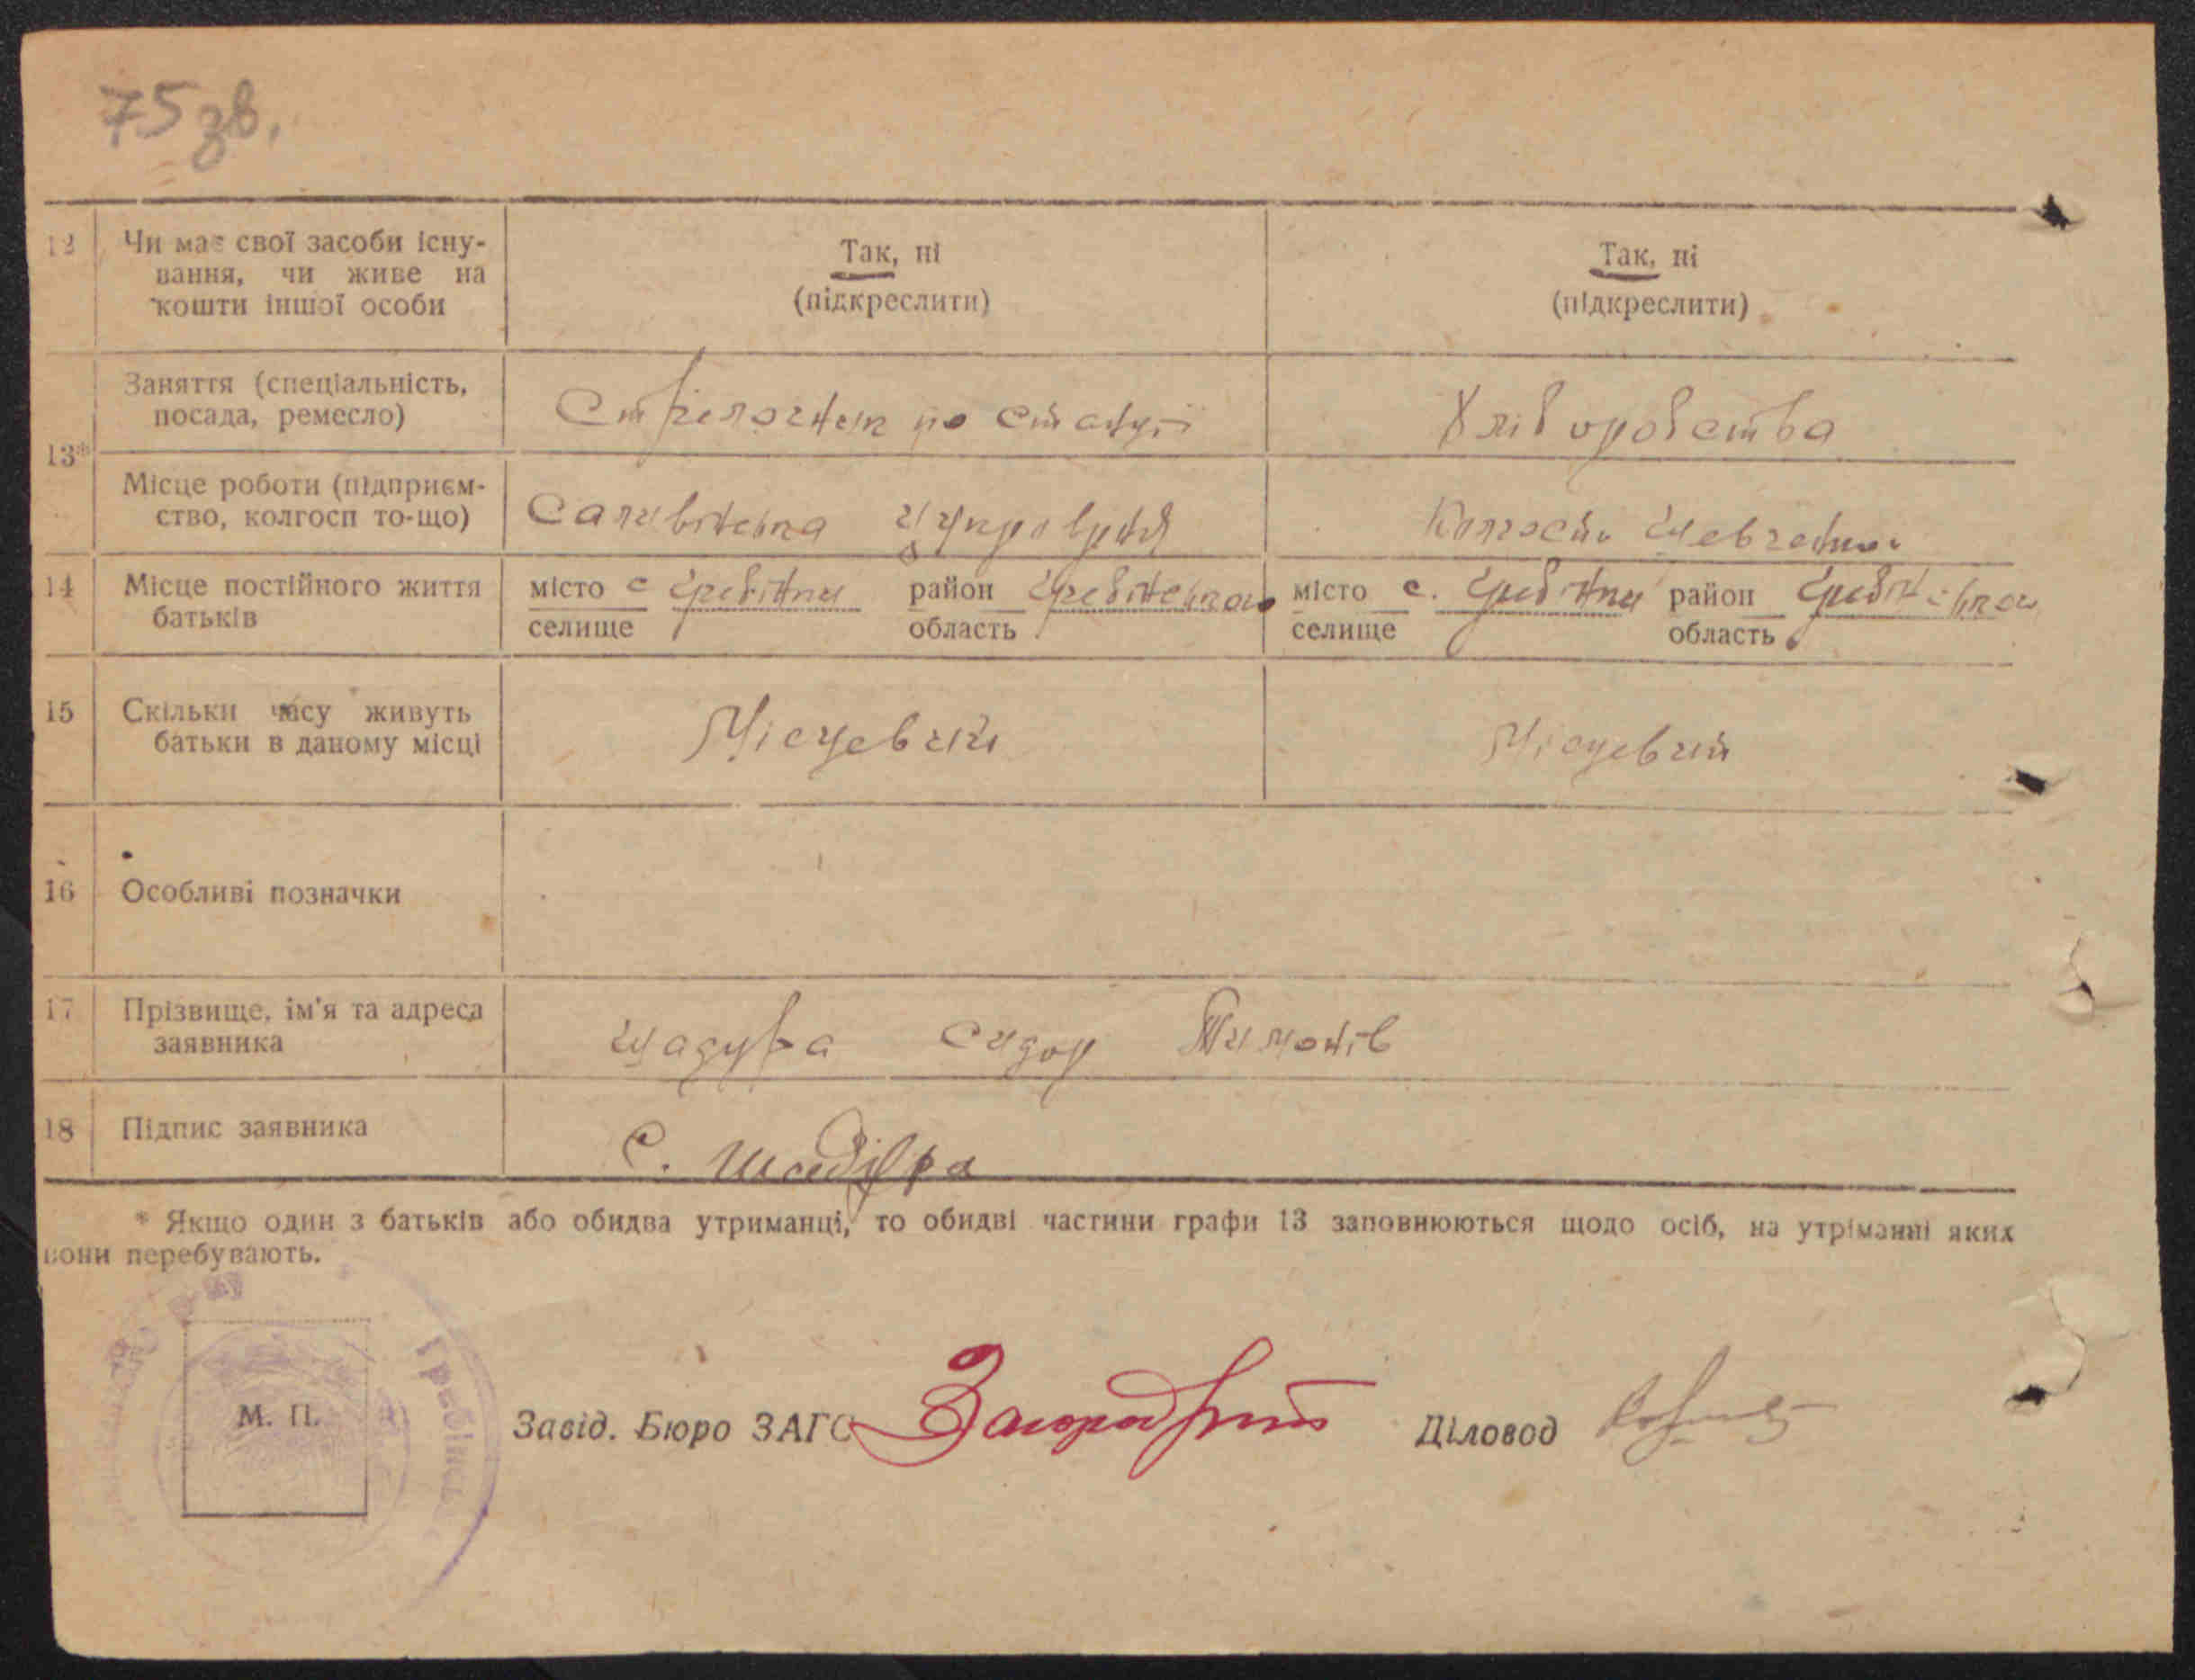 75 зв.
12 Чи має свої засоби існу-
вання, чи живе на
кошти іншої особи
Так, ні
(підкреслити)
Так, ні
(підкреслити)
13*
Заняття (спеціальність,
посада, ремесло)
Стрілочник по станції
Хліборобства
Місце роботи (підприєм-
ство, колгосп то-що)
Саливінська цукроварня
Колгосп Шевченка
14 Місце постійного життя
батьків
місто с Гребінки район Гребінського
селище область
місто с. Гребінки район
селище область
15 Скільки часу живуть
батьки в даному місці
Місцевий
Місцевий
16 Особливі позначки
17 Прізвище, ім'я та адреса
заявника
Шадура Сидор Тимонів
18 Підпис заявника
С. Шадура
* Якщо один з батьків або обидва утриманці, то обидві частини графи 13 заповнюються щодо осіб, на утріманні яких
вони перебувають.
М. П.
Завід. Бюро ЗАГС
Діловод